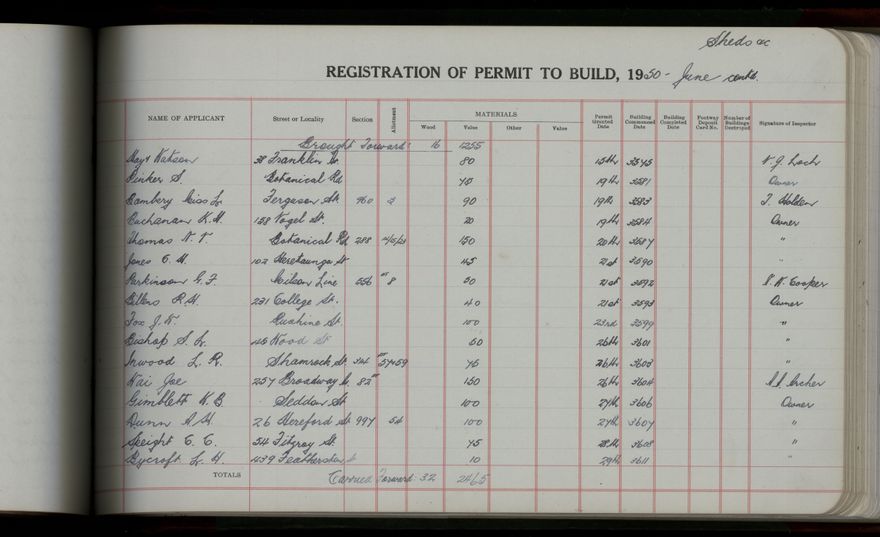 Sheds &c
REGISTRATION OF PERMIT TO BUILD, 1950 - June contd.
NAME OF APPLICANT Street or Locality Section Allotment MATERIALS Permit Granted Date Building Commenced Date Building Completed Date Footway Deposit Card No. Number of Buildings Destroyed Signature of Inspector
Wood Value Other Value
Brought Forward: 16 1255
38 Franklin 80 15th 3575
S. Botanical Rd 19th 3581 Owner
Miss L. Ferguson St. 960 90 19th 3583 T. Holden
Buchanan K.M. 158 Vogel St. 20 19th 3584 Owner
Thomas Botanical Rd 288 150 20th 3587 "
Jones C.M. 102 Heretaunga St 45 21st 3590 "
Parkinson G.F. Milson Line 556 8 50 21st 3592 Cooper
R.H. 231 College St. 40 21st 3593 Owner
Fox J. Rushine St. 100 23rd 3599 "
Bishop S. L. 45 Wood St 50 26th 3601 "
Inwood L. R. Shamrock St. 344 57+59 45 26th 3603 "
Wai Joe 257 Broadway 82 150 26th 3604 Archer
Gimblett Seddon St 100 27th 3606 Owner
Dunn A.H. 26 Hereford St 997 54 100 27th 3607 "
Speight C. C. 54 Fitzroy St. 45 28th 3608 "
Bycroft L. H. 439 Featherston St 10 29th 3611 "
TOTALS Carried Forward: 32 2465